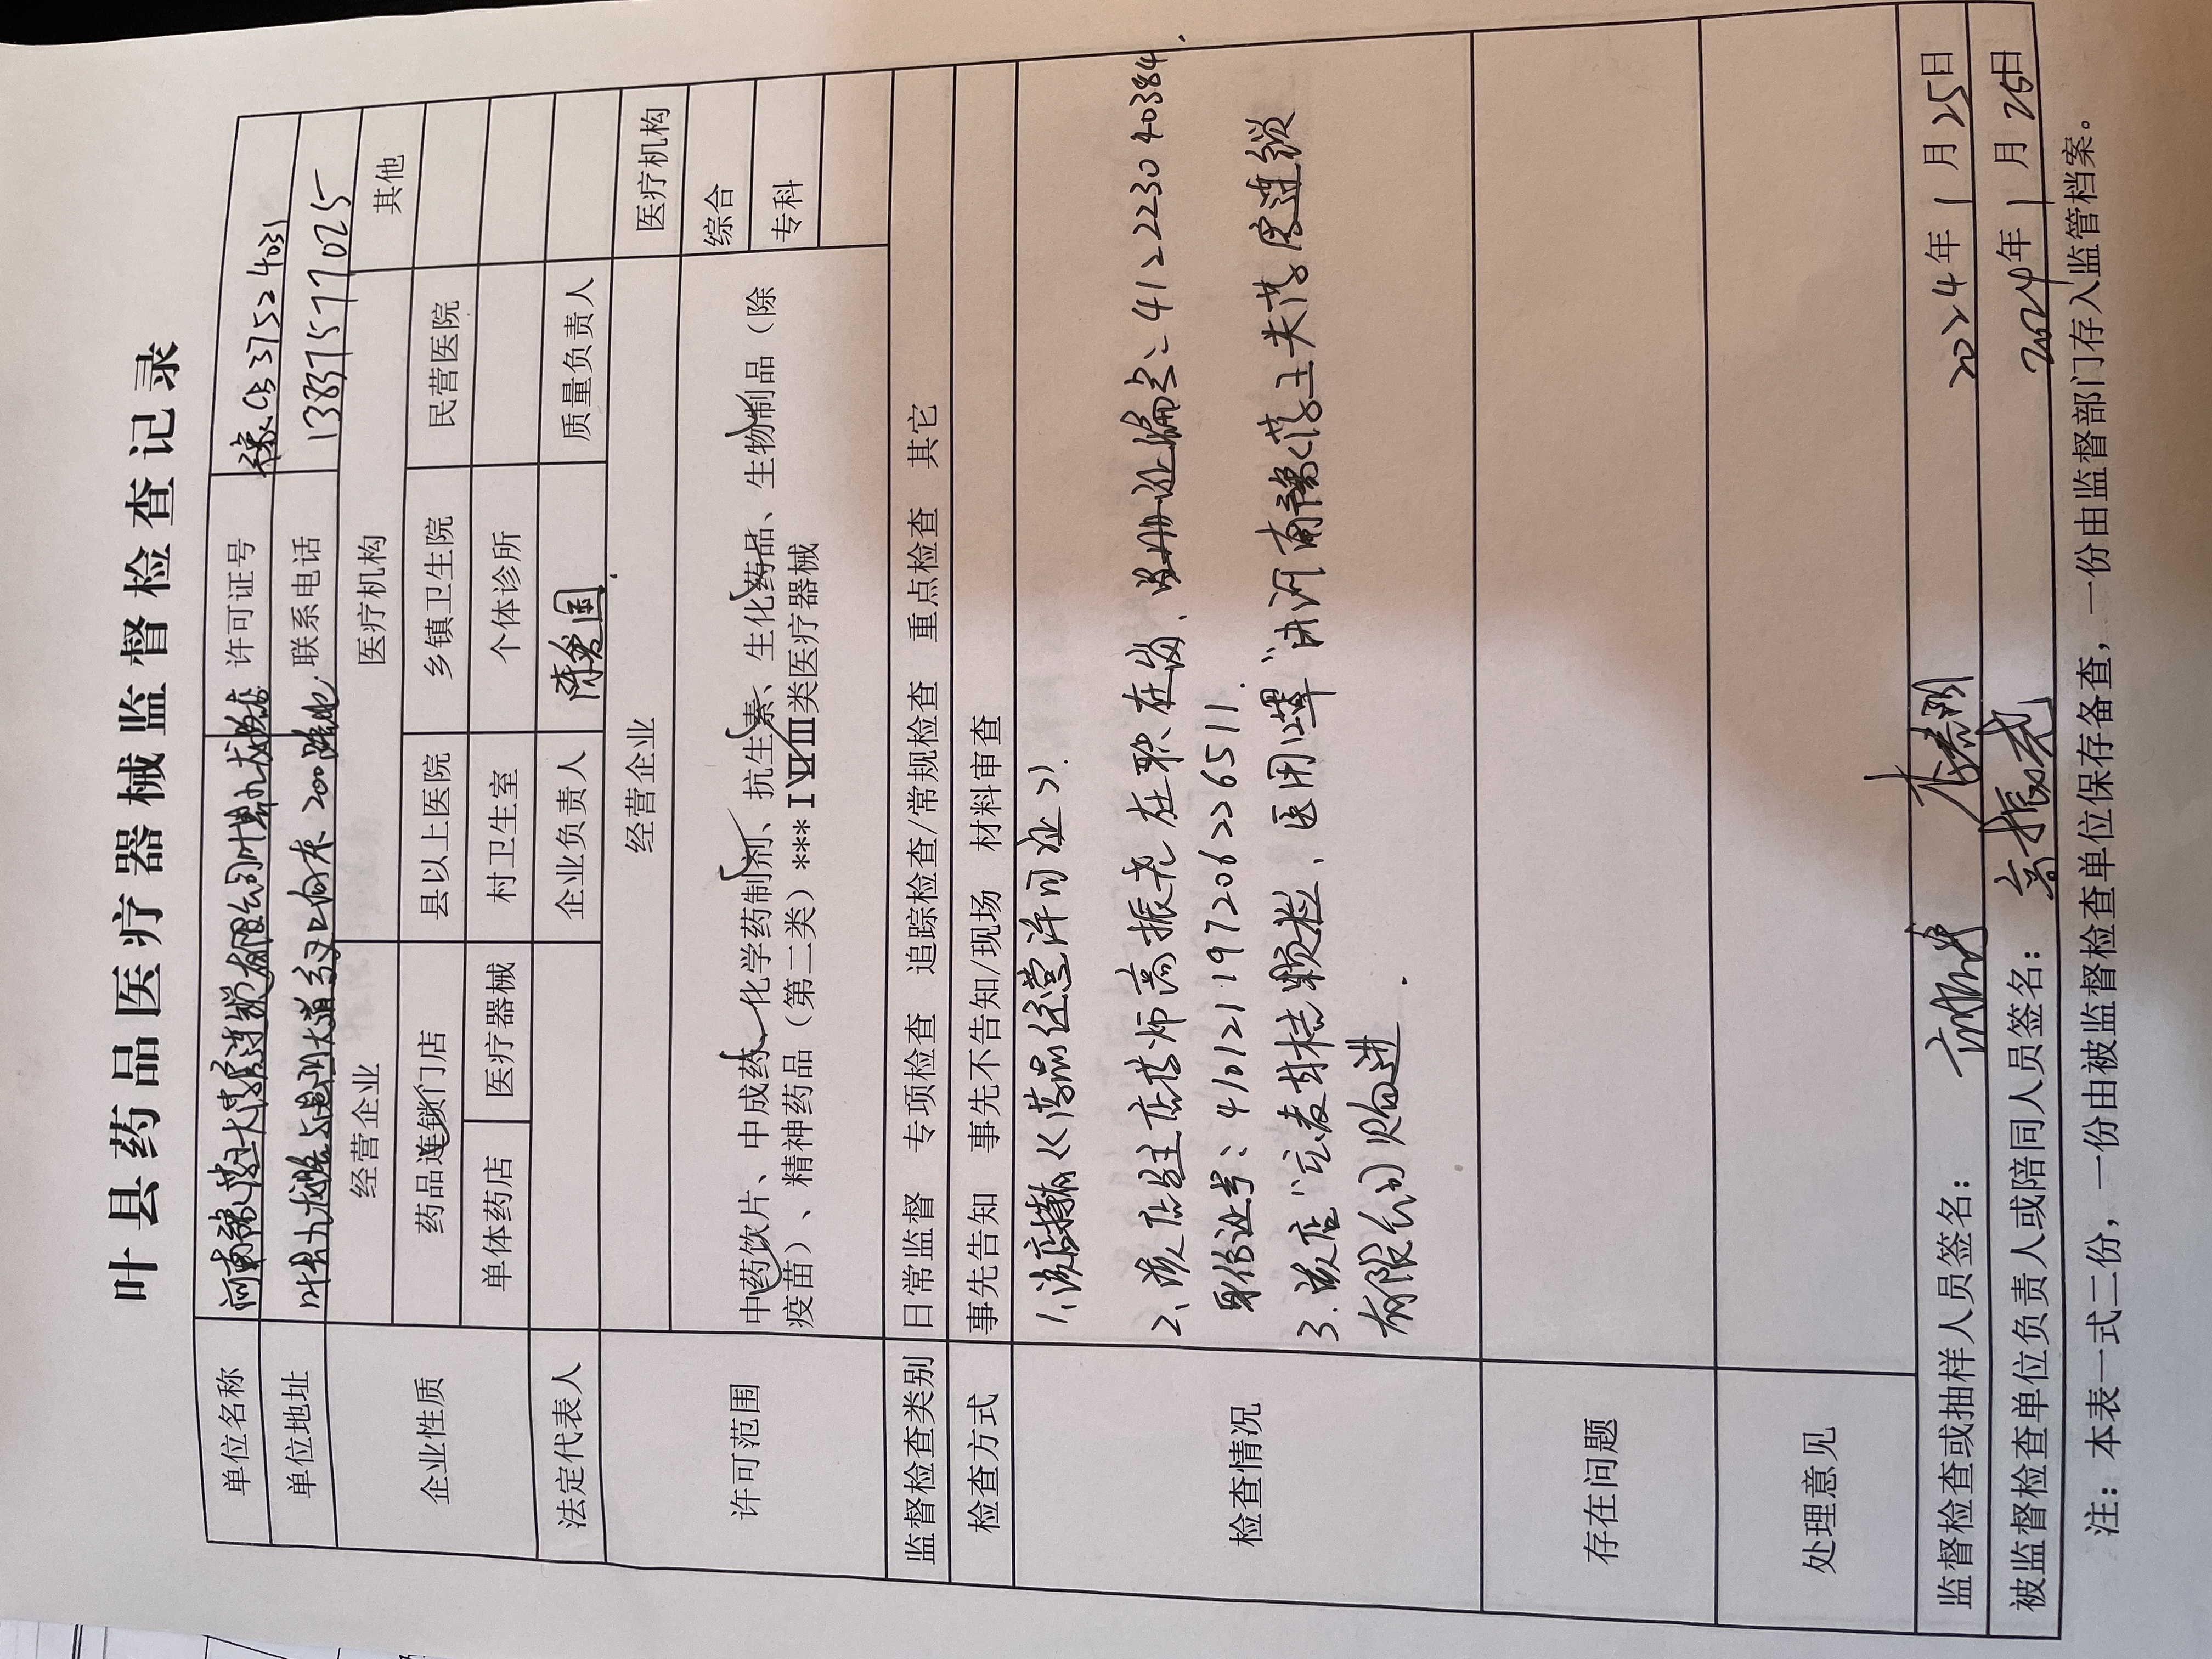 叶县药品医疗器械监督检查记录
单位名称 河南豫药王大药房连锁有限公司叶县九龙路店 许可证号 豫CB37524031
单位地址 叶县九龙路与昆阳大道交叉口向东200米路北 联系电话 13837577025
企业性质 经营企业 医疗机构 其他
药品连锁门店 县以上医院 乡镇卫生院 民营医院
单体药店 医疗器械 村卫生室 个体诊所
法定代表人 企业负责人 陈爱国 质量负责人
许可范围 经营企业 医疗机构
中药饮片、中成药、化学药制剂、抗生素、生化药品、生物制品（除 综合
疫苗）、精神药品（第二类）***Ⅰ Ⅱ Ⅲ类医疗器械 专科
监督检查类别 日常监督 专项检查 追踪检查/常规检查 重点检查 其它
检查方式 事先告知 事先不告知/现场 材料审查
检查情况 1、该店持有《药品经营许可证》.
2、该店驻店药师高振尧在职在岗、注册证编号：412223040384.
身份证号：410121197206226511.
3.该店"完麦桔颗粒、医用口罩"由河南豫药王大药房连锁
有限公司购进.
存在问题
处理意见
监督检查或抽样人员签名： 2024年1月25日
被监督检查单位负责人或陪同人员签名： 高振尧 2024年1月25日
注：本表一式二份，一份由被监督检查单位保存备查，一份由监督部门存入监管档案。